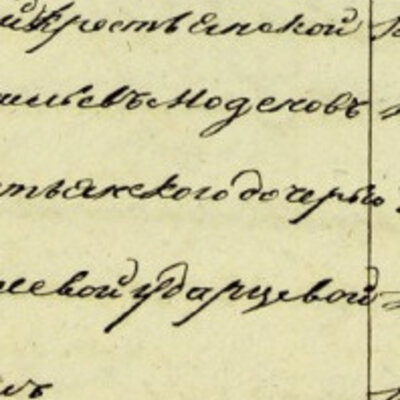 й крестьянской
ильевъ Моденовъ
тьянского дочерью
левой Ударцевой
мъ